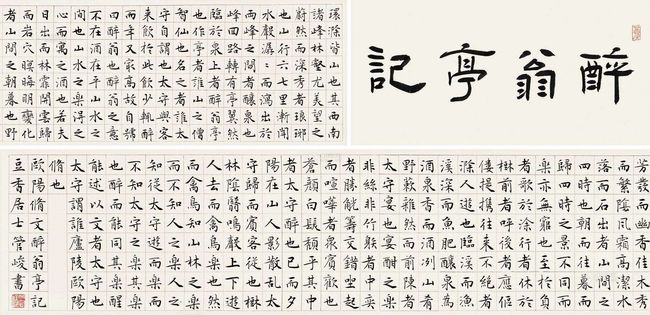 醉翁亭記
環滁皆山也其西南
諸峰林壑尤美望之
蔚然而深秀者琅琊
也山行六七里漸聞
水聲潺潺而瀉出於
兩峰之間者釀泉也
峰回路轉有亭翼然
臨於泉上者醉翁亭
也作亭者誰山之僧
智仙也名之者誰太
守自謂也太守與客
來飲於此飲少輒醉
而年又最高故自號
曰醉翁也醉翁之意
不在酒在乎山水之
間也山水之樂得之
心而寓之酒也若夫
日出而林霏開雲歸
而岩穴暝晦明變化
者山間之朝暮也野
芳發而幽香佳木秀
而繁陰風霜高潔水
落而石出者山間之
四時也朝而往暮而
歸四時之景不同而
樂亦無窮也至於負
者歌於途行者休於
樹前者呼後者應傴
僂提攜往來不絕者
滁人遊也臨溪而漁
溪深而魚肥釀泉為
酒泉香而酒洌山肴
野蔌雜然而前陳者
太守宴也宴酣之樂
非絲非竹射者中奕
者勝觥籌交錯坐起
而諠譁者眾賓歡也
蒼顏白髮頹乎其中
者太守醉也已而夕
陽在山人影散亂太
守歸而賓客從也樹
林陰翳鳴聲上下遊
人去而禽鳥樂也然
而禽鳥知山林之樂
而不知人之樂人之
知從太守遊而樂而
不知太守之樂其樂
也醉而能同其樂醒
能述以文者太守也
太守謂誰廬陵歐陽
脩也
歐陽脩文醉翁亭記
豆香居士管峻書